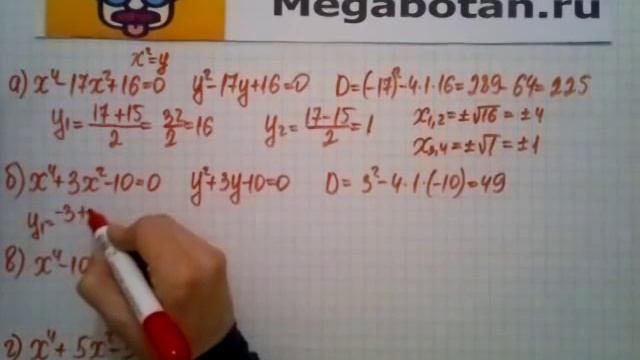 Megabotan.ru
x²=y
а) x⁴-17x²+16=0 y²-17y+16=0 D=(-17)²-4·1·16=289-64=225
y₁=17+15/2=32/2=16 y₂=17-15/2=1 x₁,₂=±√16=±4
x₃,₄=±√1=±1
б) x⁴+3x²-10=0 y²+3y-10=0 D=3²-4·1·(-10)=49
y₁=-3+
в) x⁴-10
г) x⁴+5x²-